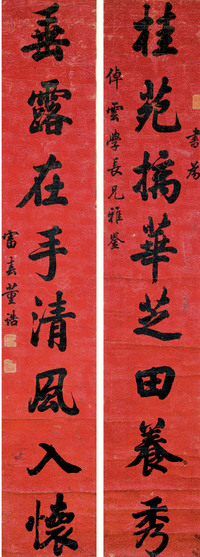 書為
桂苑摛華芝田養秀
倬雲學長兄雅鑒
垂露在手清風入懷
富春董誥